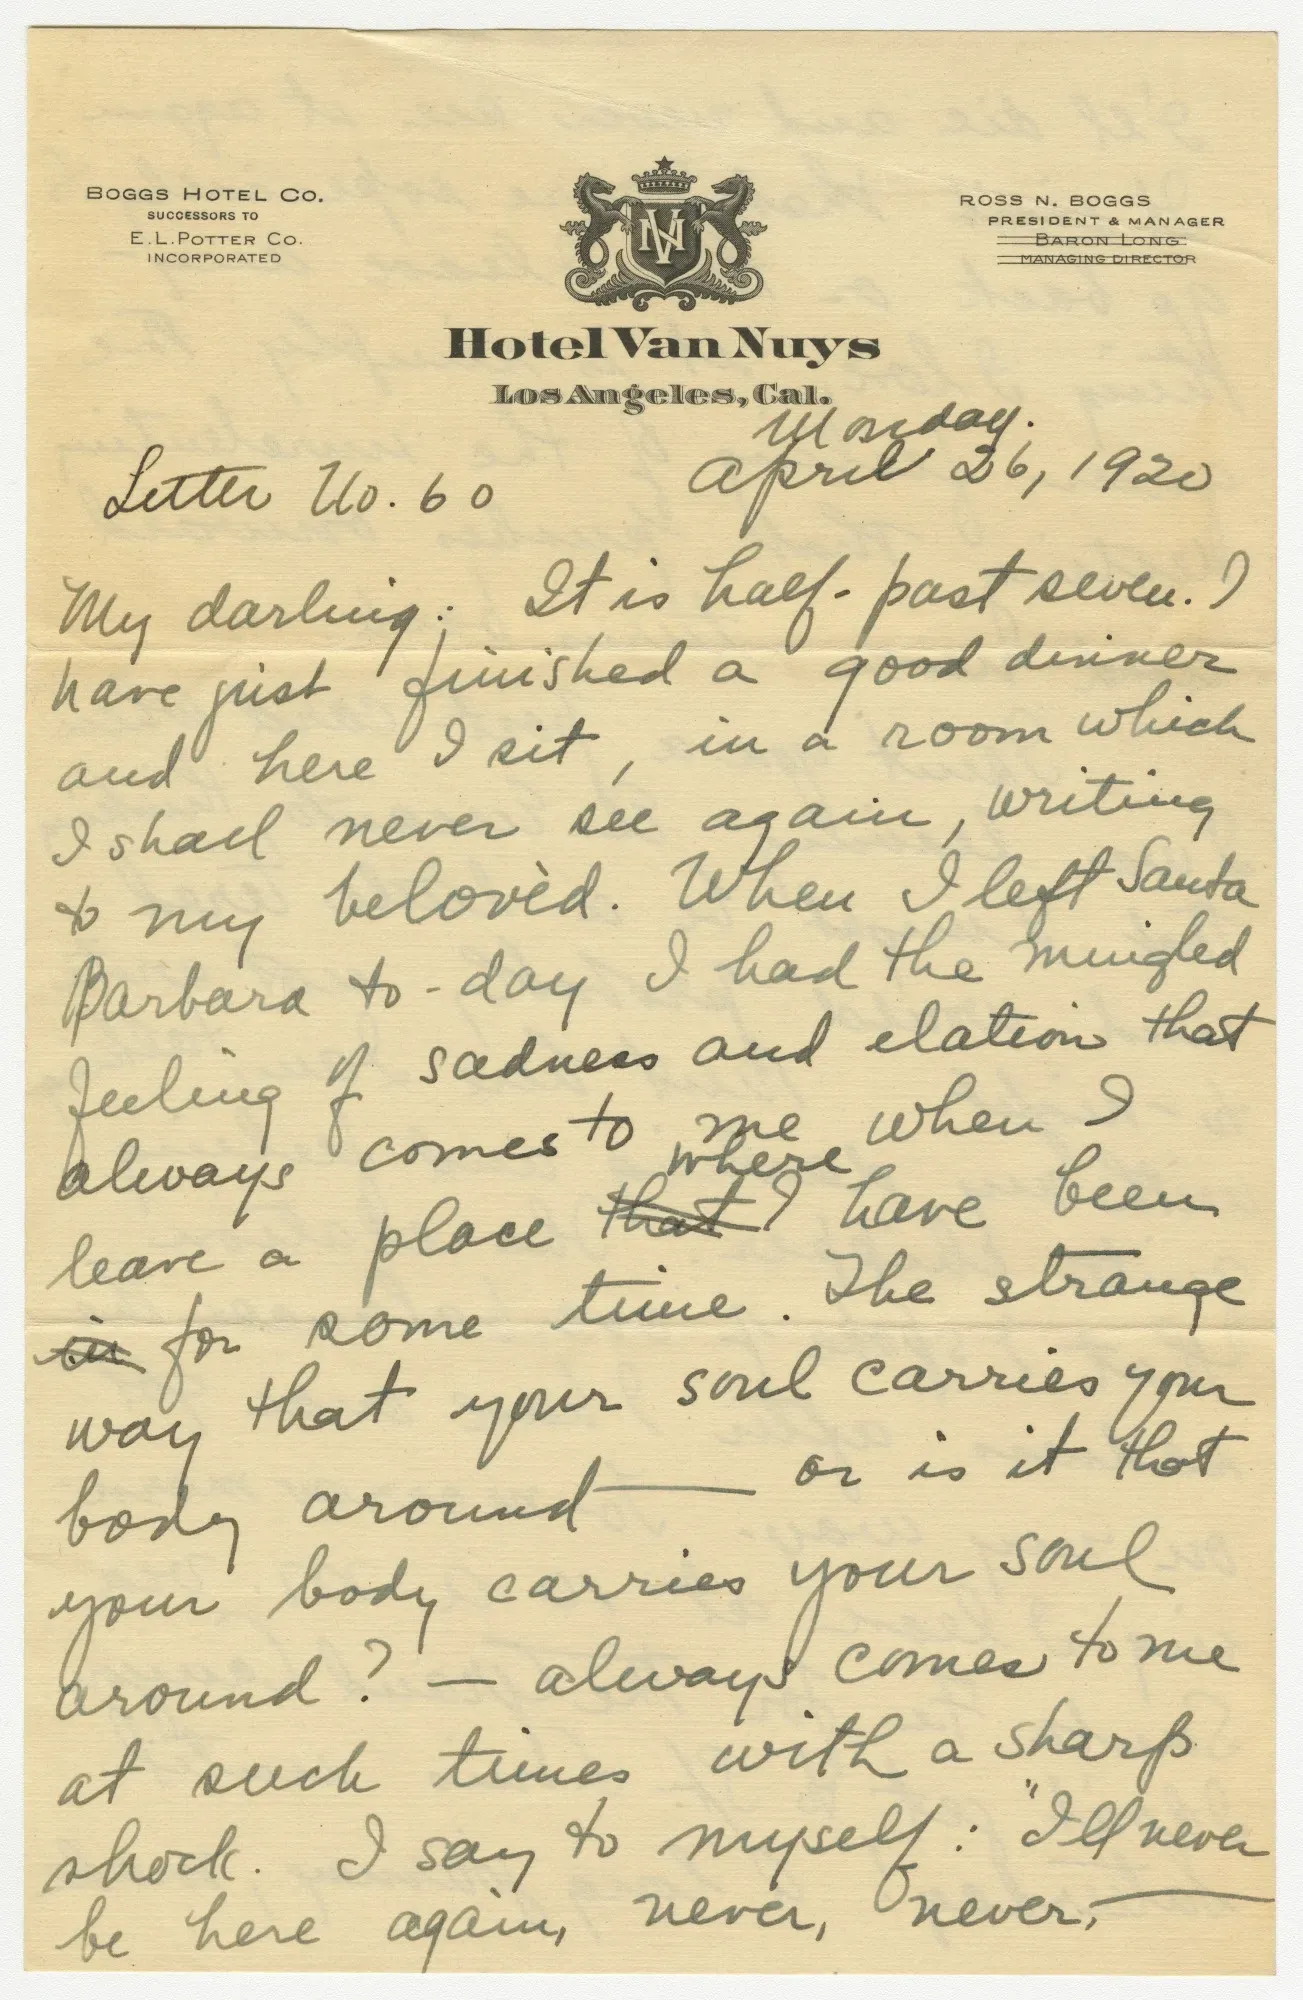 BOGGS HOTEL CO.
SUCCESSORS TO
E.L. POTTER CO.
INCORPORATED
ROSS N. BOGGS
PRESIDENT & MANAGER
BARON LONG
MANAGING DIRECTOR
VN
Hotel Van Nuys
Los Angeles, Cal.
Monday.
Letter No. 60 April 26, 1920
My darling: It is half-past seven. I
have just finished a good dinner
and here I sit, in a room which
I shall never see again, writing
to my belovèd. When I left Santa
Barbara to-day I had the mingled
feeling of sadness and elation that
always comes to me when I
leave a place that where I have been
in for some time. The strange
way that your soul carries your
body around — or is it that
your body carries your soul
around? — always comes to me
at such times with a sharp
shock. I say to myself: "I'll never
be here again, never, never, —